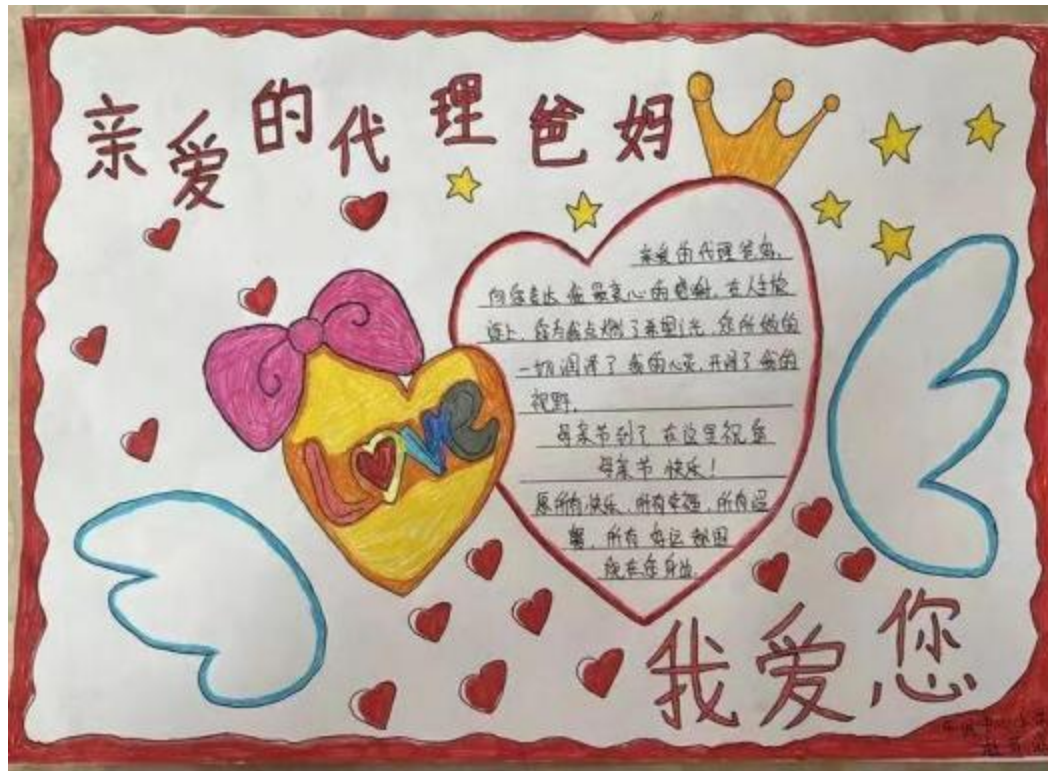 亲爱的代理爸妈
亲爱的代理爸妈,
向您表达我最衷心的感谢,在人生旅
途上,您为我点燃了希望之光,您所做的
一切润泽了我的心灵,开阔了我的
视野,
LOVE
母亲节到了在这里祝您
母亲节快乐!
愿所有快乐,所有幸福,所有温
馨,所有好运都围
绕在您身边
我爱您